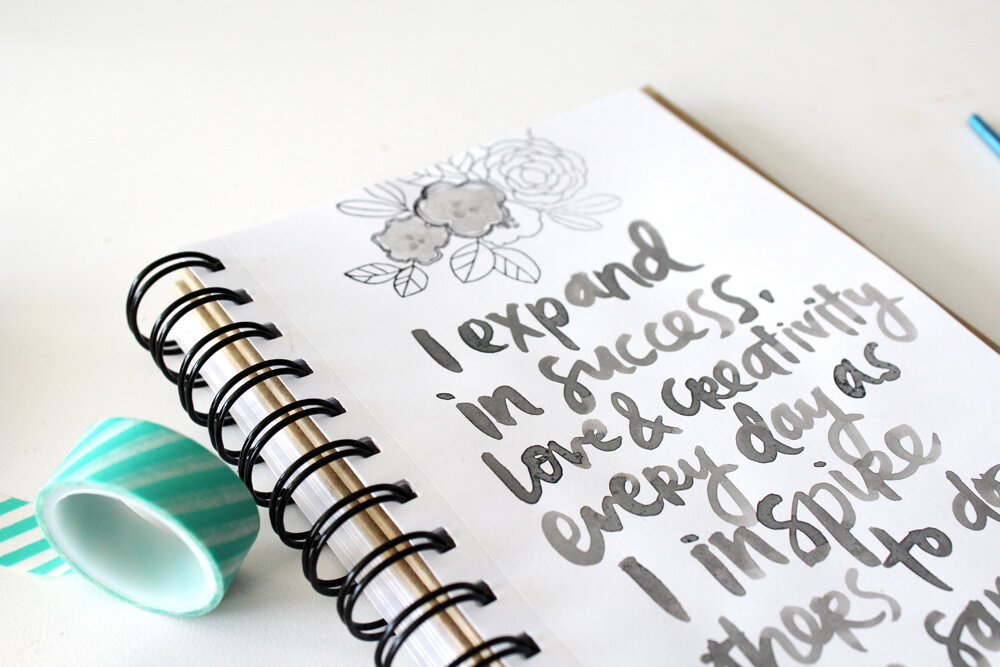 I expand
in success,
love & creativity
every day as
I inspire
others to do